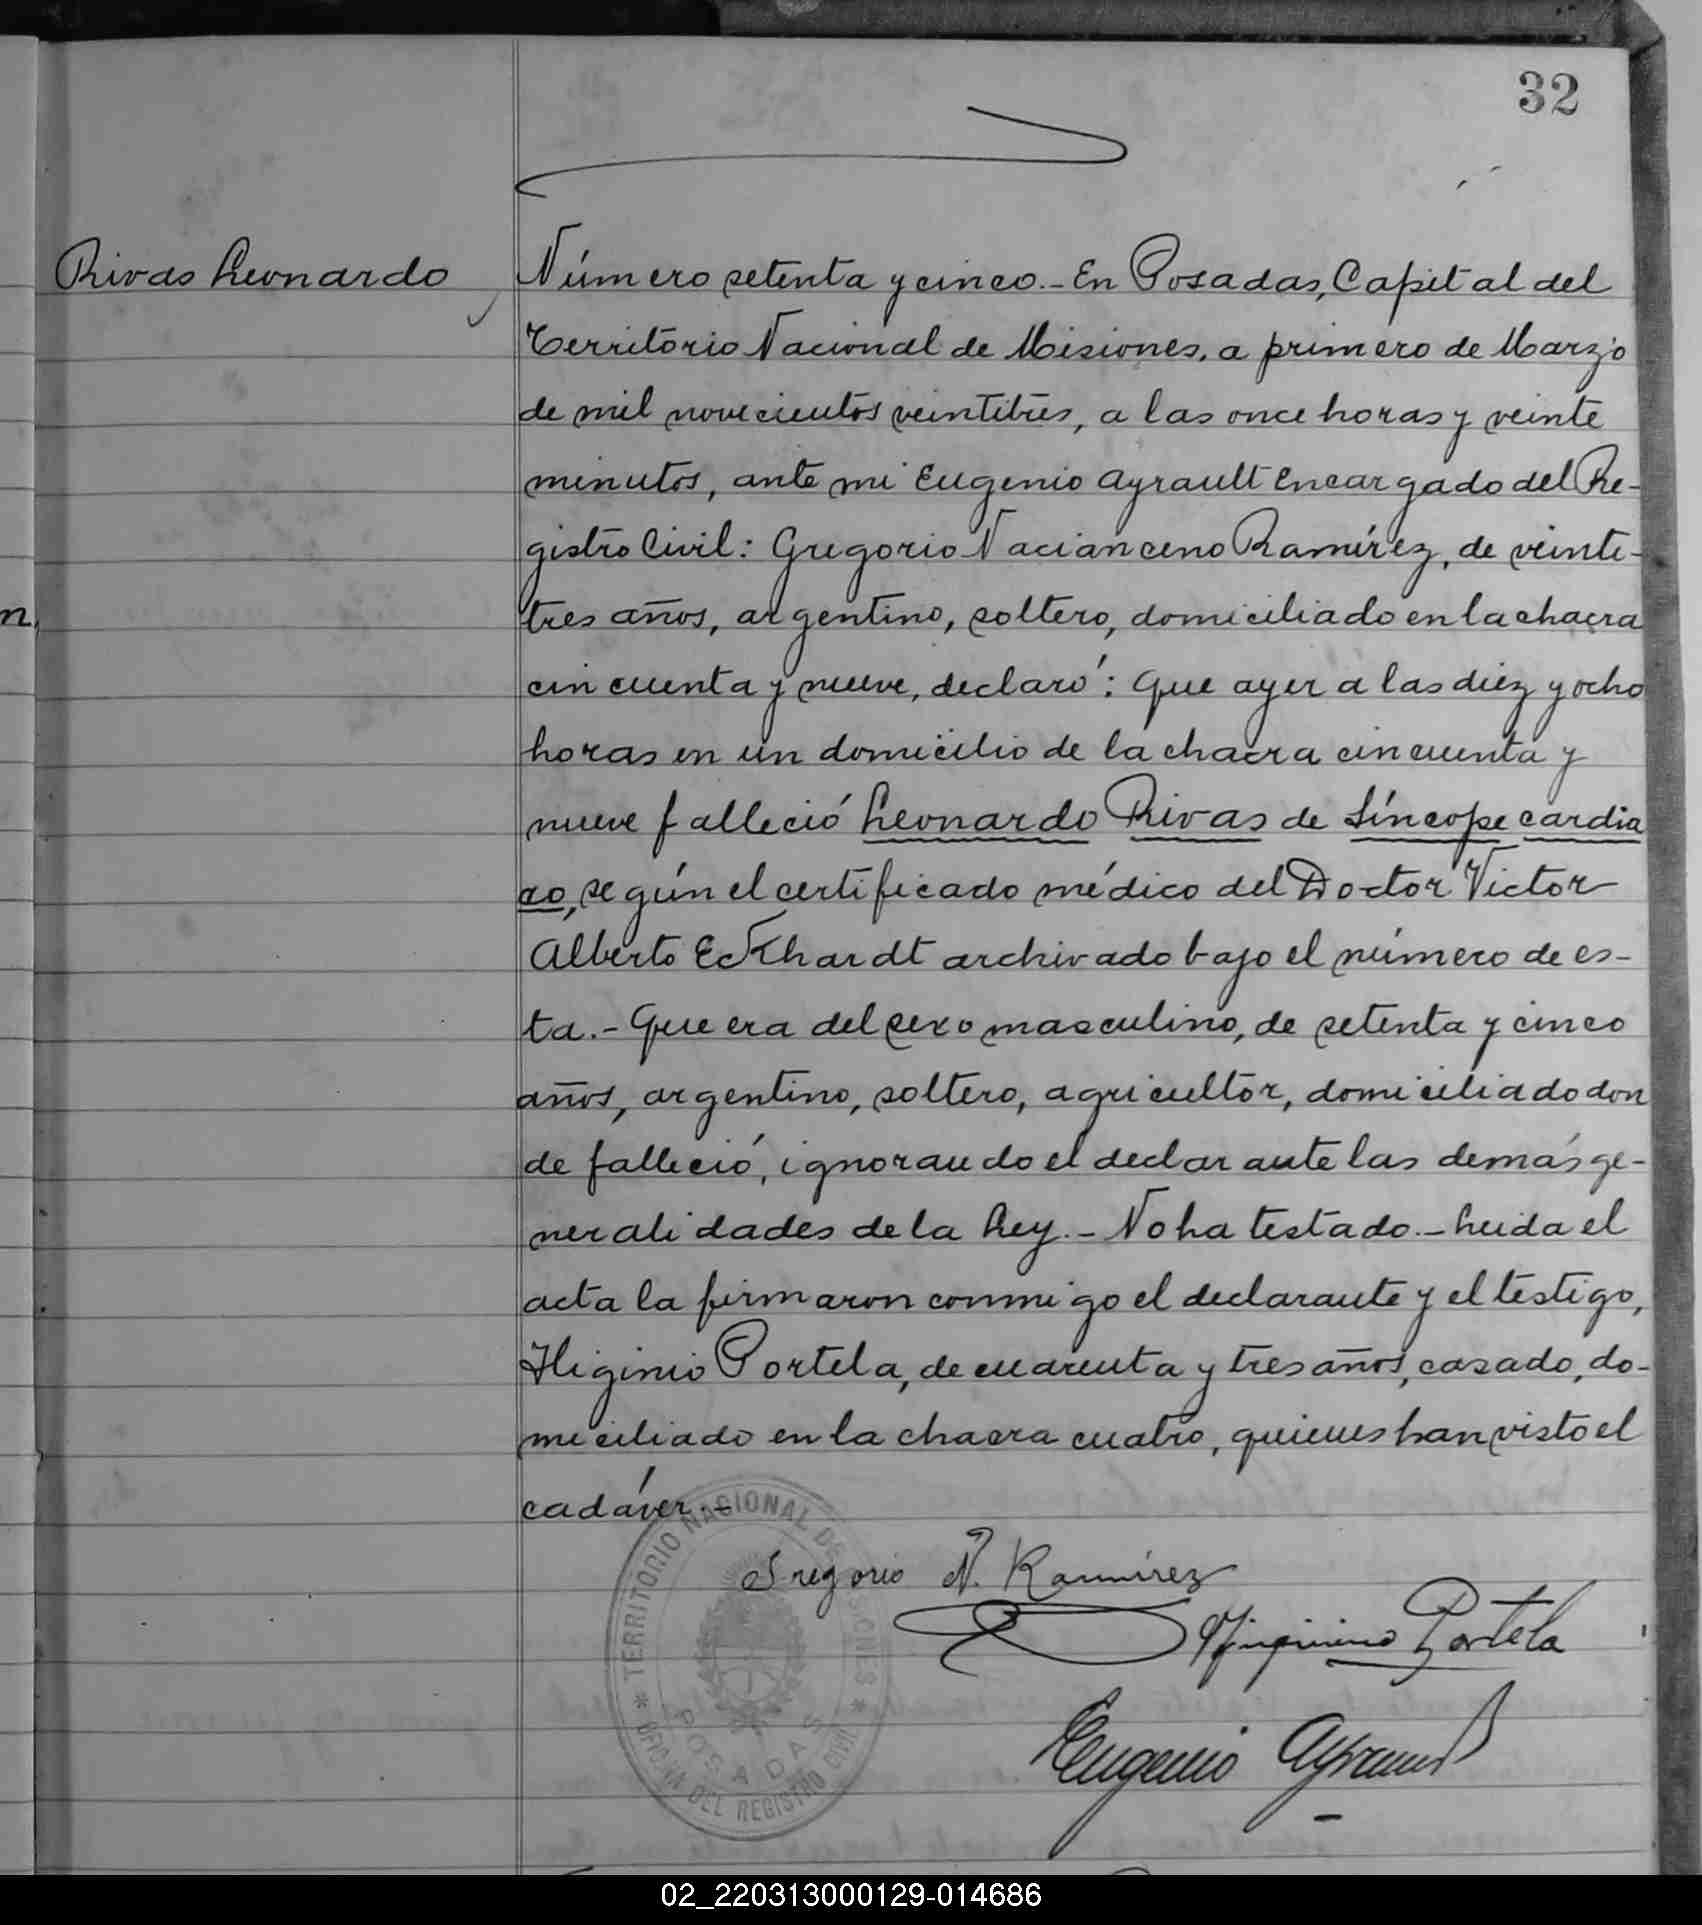 32
Rivas Leonardo
Número setenta y cinco.- En Posadas, Capital del
Territorio Nacional de Misiones, a primero de Marzo
de mil novecientos veintitres, a las once horas y veinte
minutos, ante mi Eugenio Ayrault Encargado del Re-
gistro Civil: Gregorio Nacianceno Ramírez, de veinti-
tres años, argentino, soltero, domiciliado en la chacra
cincuenta y nueve, declaró: Que ayer a las diez y ocho
horas en un domicilio de la chacra cincuenta y
nueve falleció Leonardo Rivas de Síncope cardia
co, según el certificado médico del Doctor Victor
Alberto Eckhardt archivado bajo el número de es-
ta.- Que era del sexo masculino, de setenta y cinco
años, argentino, soltero, agricultor, domiciliado don
de falleció, ignorando el declarante las demás ge-
neralidades de la Ley.- No ha testado.- Leida el
acta la firmaron conmigo el declarante y el testigo,
Higinio Portela, de cuarenta y tres años, casado, do-
miciliado en la chacra cuatro, quienes han visto el
cadáver.-
n,
Gregorio N. Ramírez
Higinio Portela
Eugenio Ayrault
TERRITORIO NACIONAL DE MISIONES
OFICINA DEL REGISTRO CIVIL
POSADAS
02_220313000129-014686